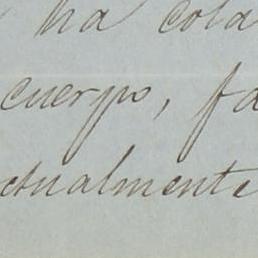 ha cola
cuerpo, fa
ctualmente